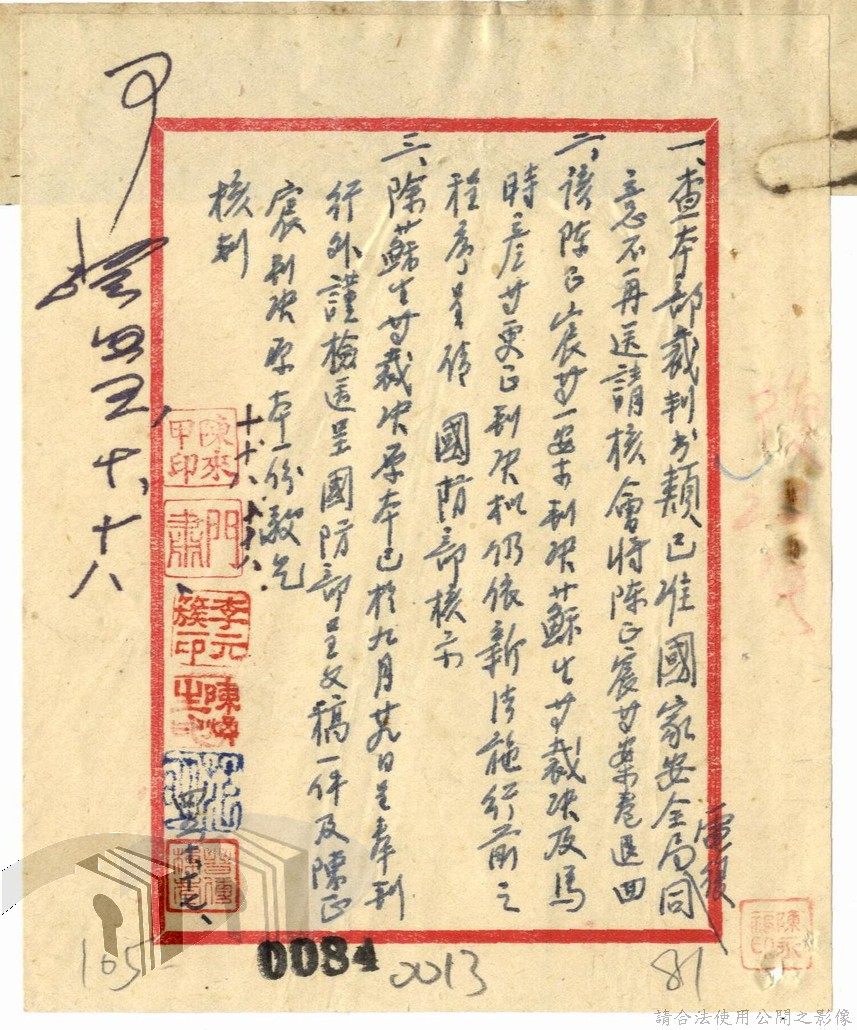 一、查本部裁判書類已准國家安全局電復同
意不再送請核會將陳正宸等案卷退回
二、該陳正宸等一案未判決蘇生等裁決及馬
時彥等更正判決擬仍依新法施行前之
程序呈請 國防部核示
三、除蘇生等裁決原本已於九月廿九日呈奉判
行外謹檢送呈國防部呈文稿一件及陳正
宸判決原本一份敬乞
核判
十、十八、
陳來甲印
門肅
季元簇印
四五、十、十七、
可
四五、十、十八
陳永福印
105
0084
0013
81
請合法使用公開之影像